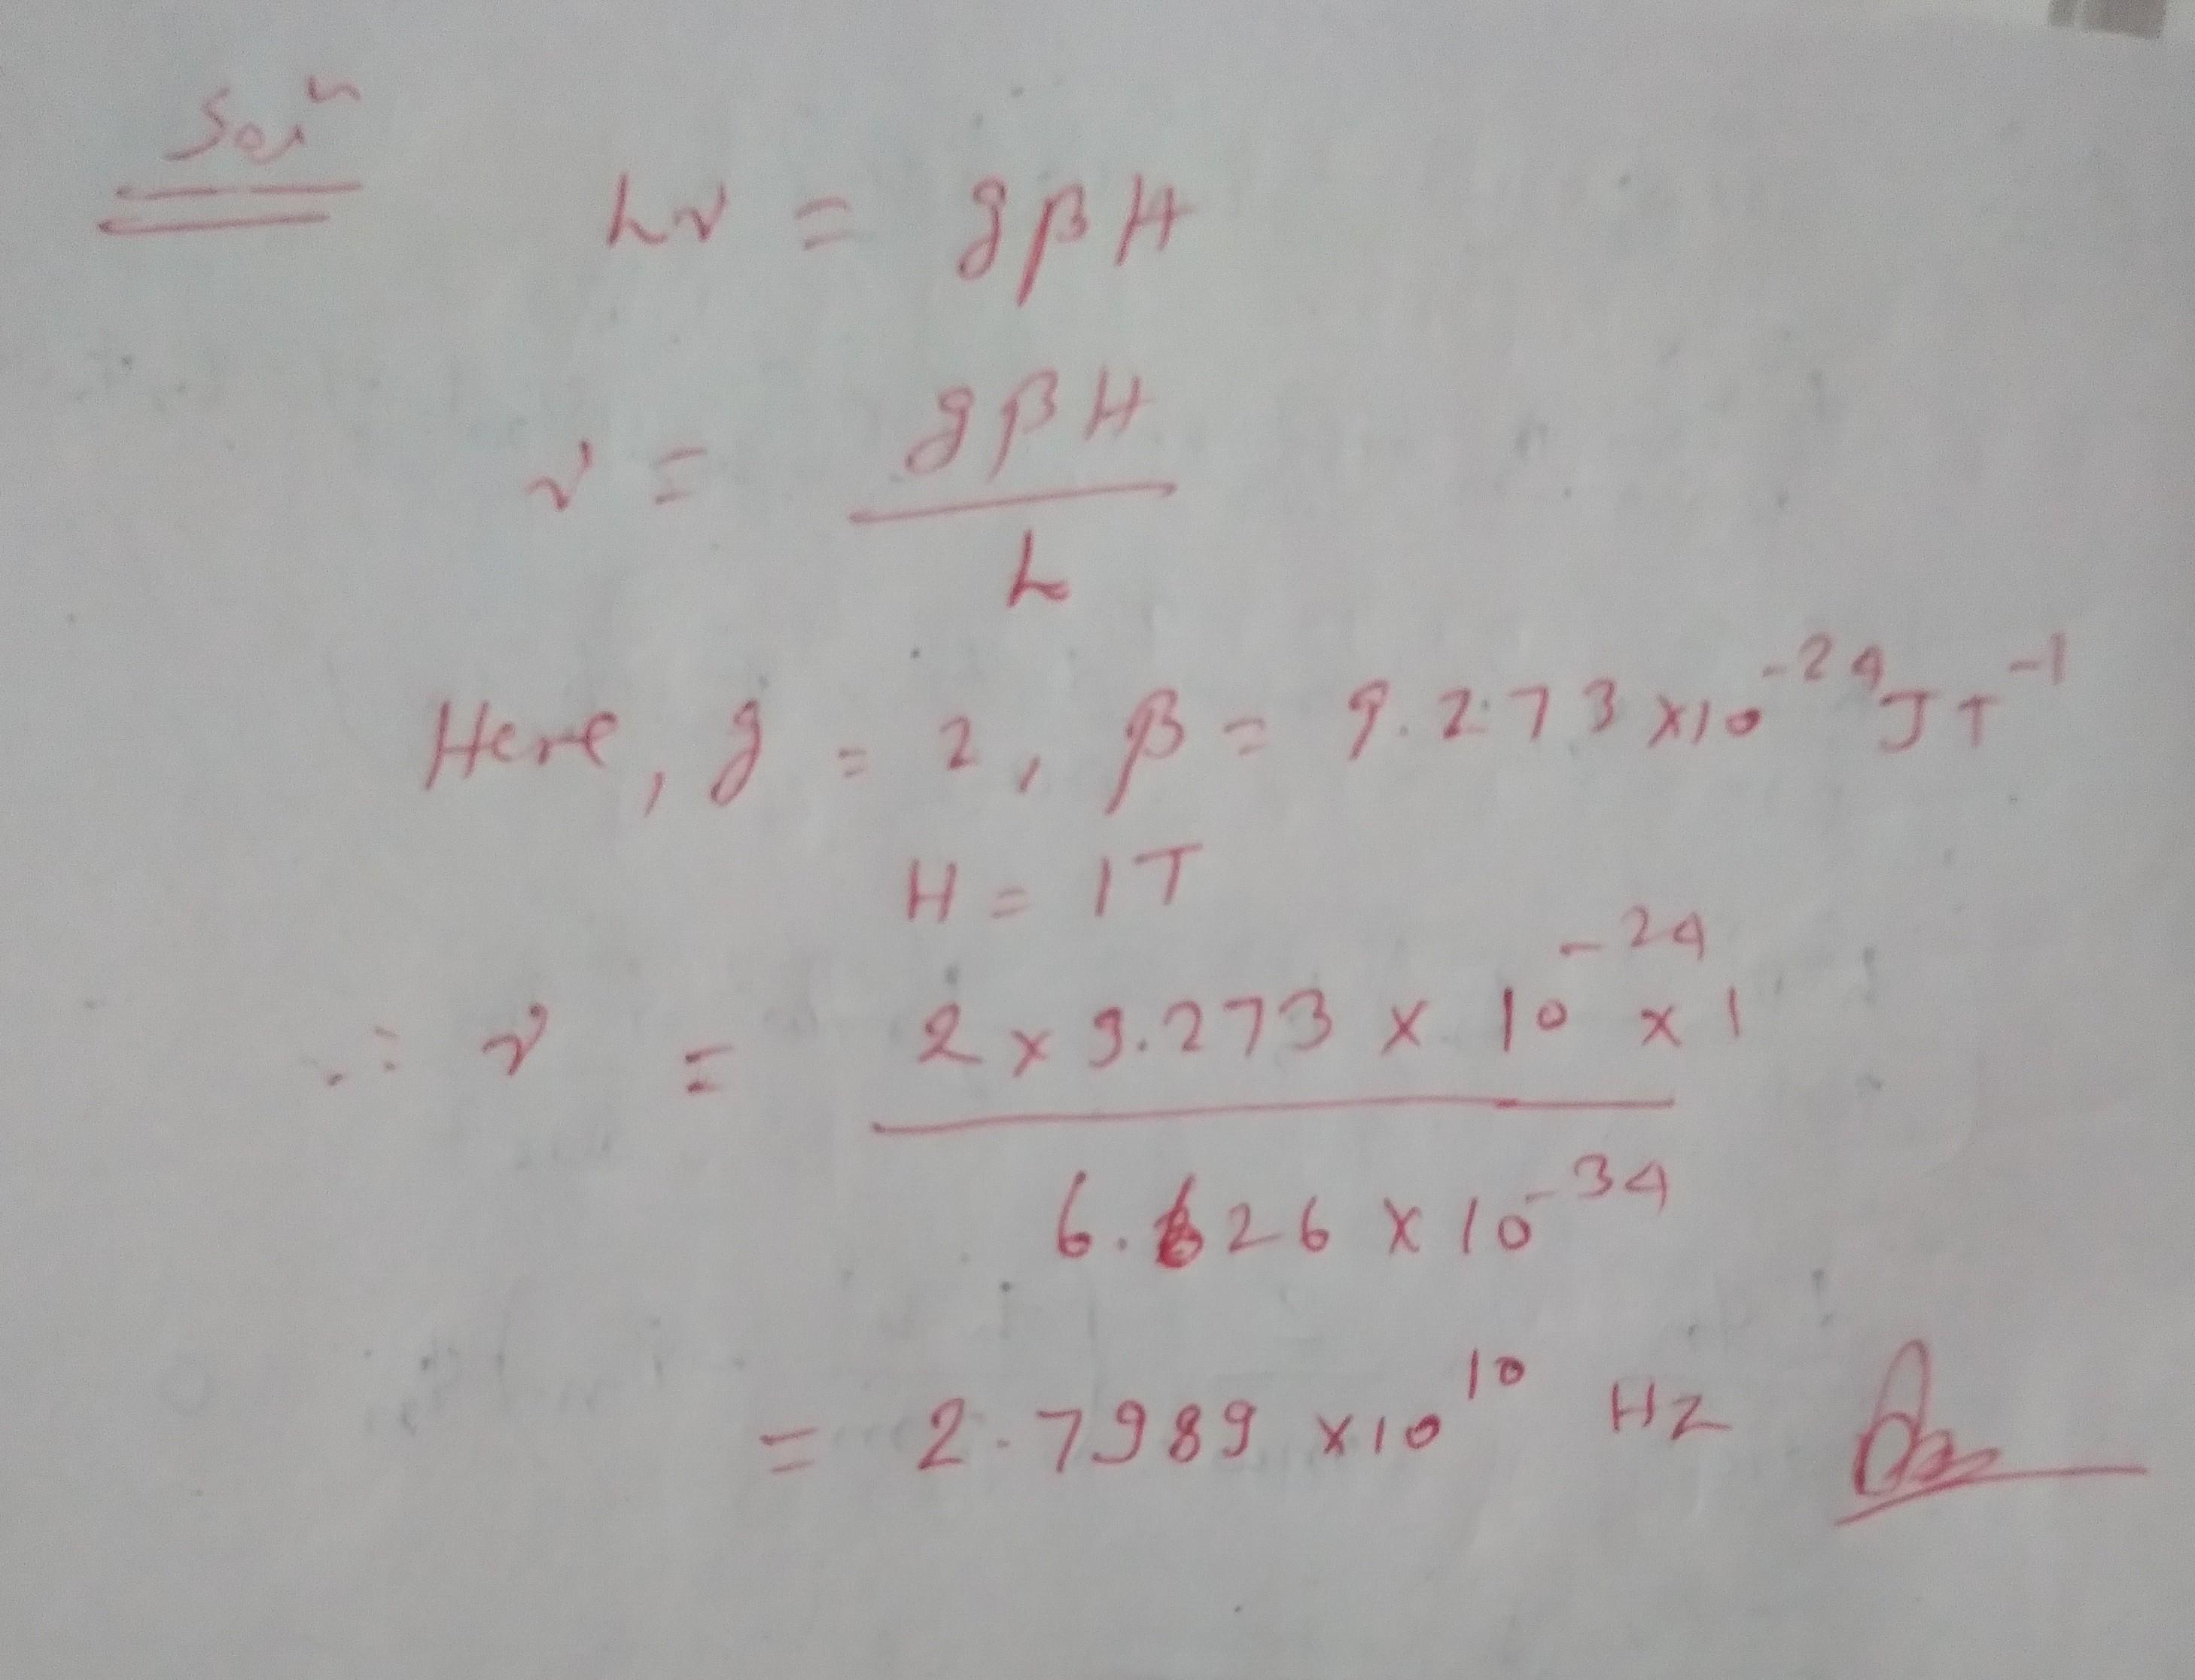 Solⁿ
hν = gβH
ν = gβH / h
Here, g = 2, β = 9.273 × 10⁻²⁴ J T⁻¹
H = 1T
∴ ν = 2 × 9.273 × 10⁻²⁴ × 1 / 6.626 × 10⁻³⁴
= 2.7989 × 10¹⁰ Hz